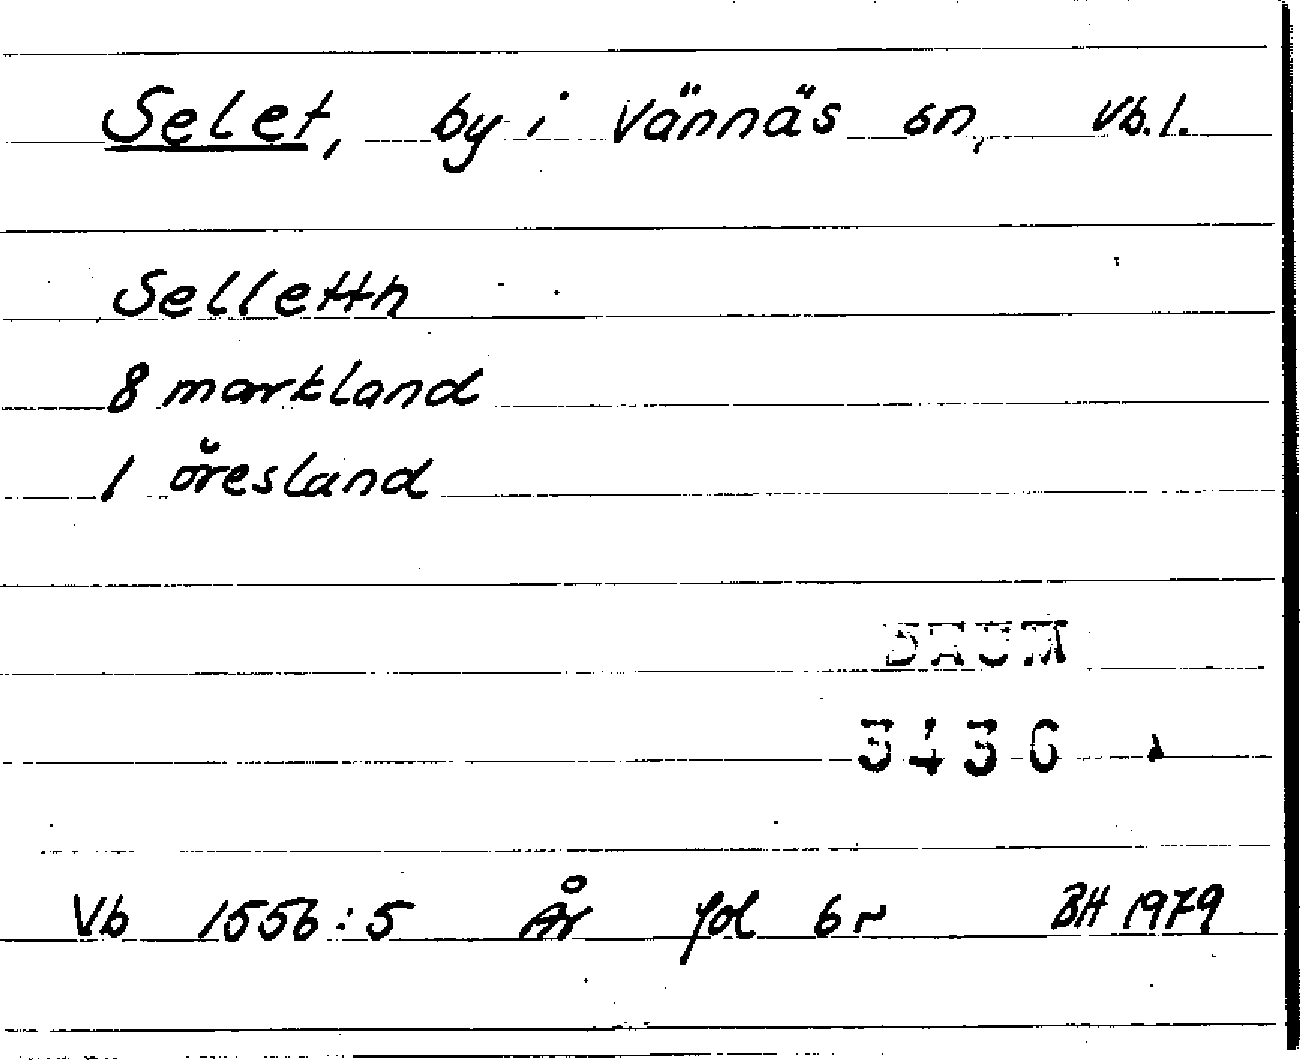 Selet, by i Vännäs sn, Vb. l.
Selletth
8 markland
1 öresland
DAUM
3436
Vb 1556:5 År fol 6r BH 1979